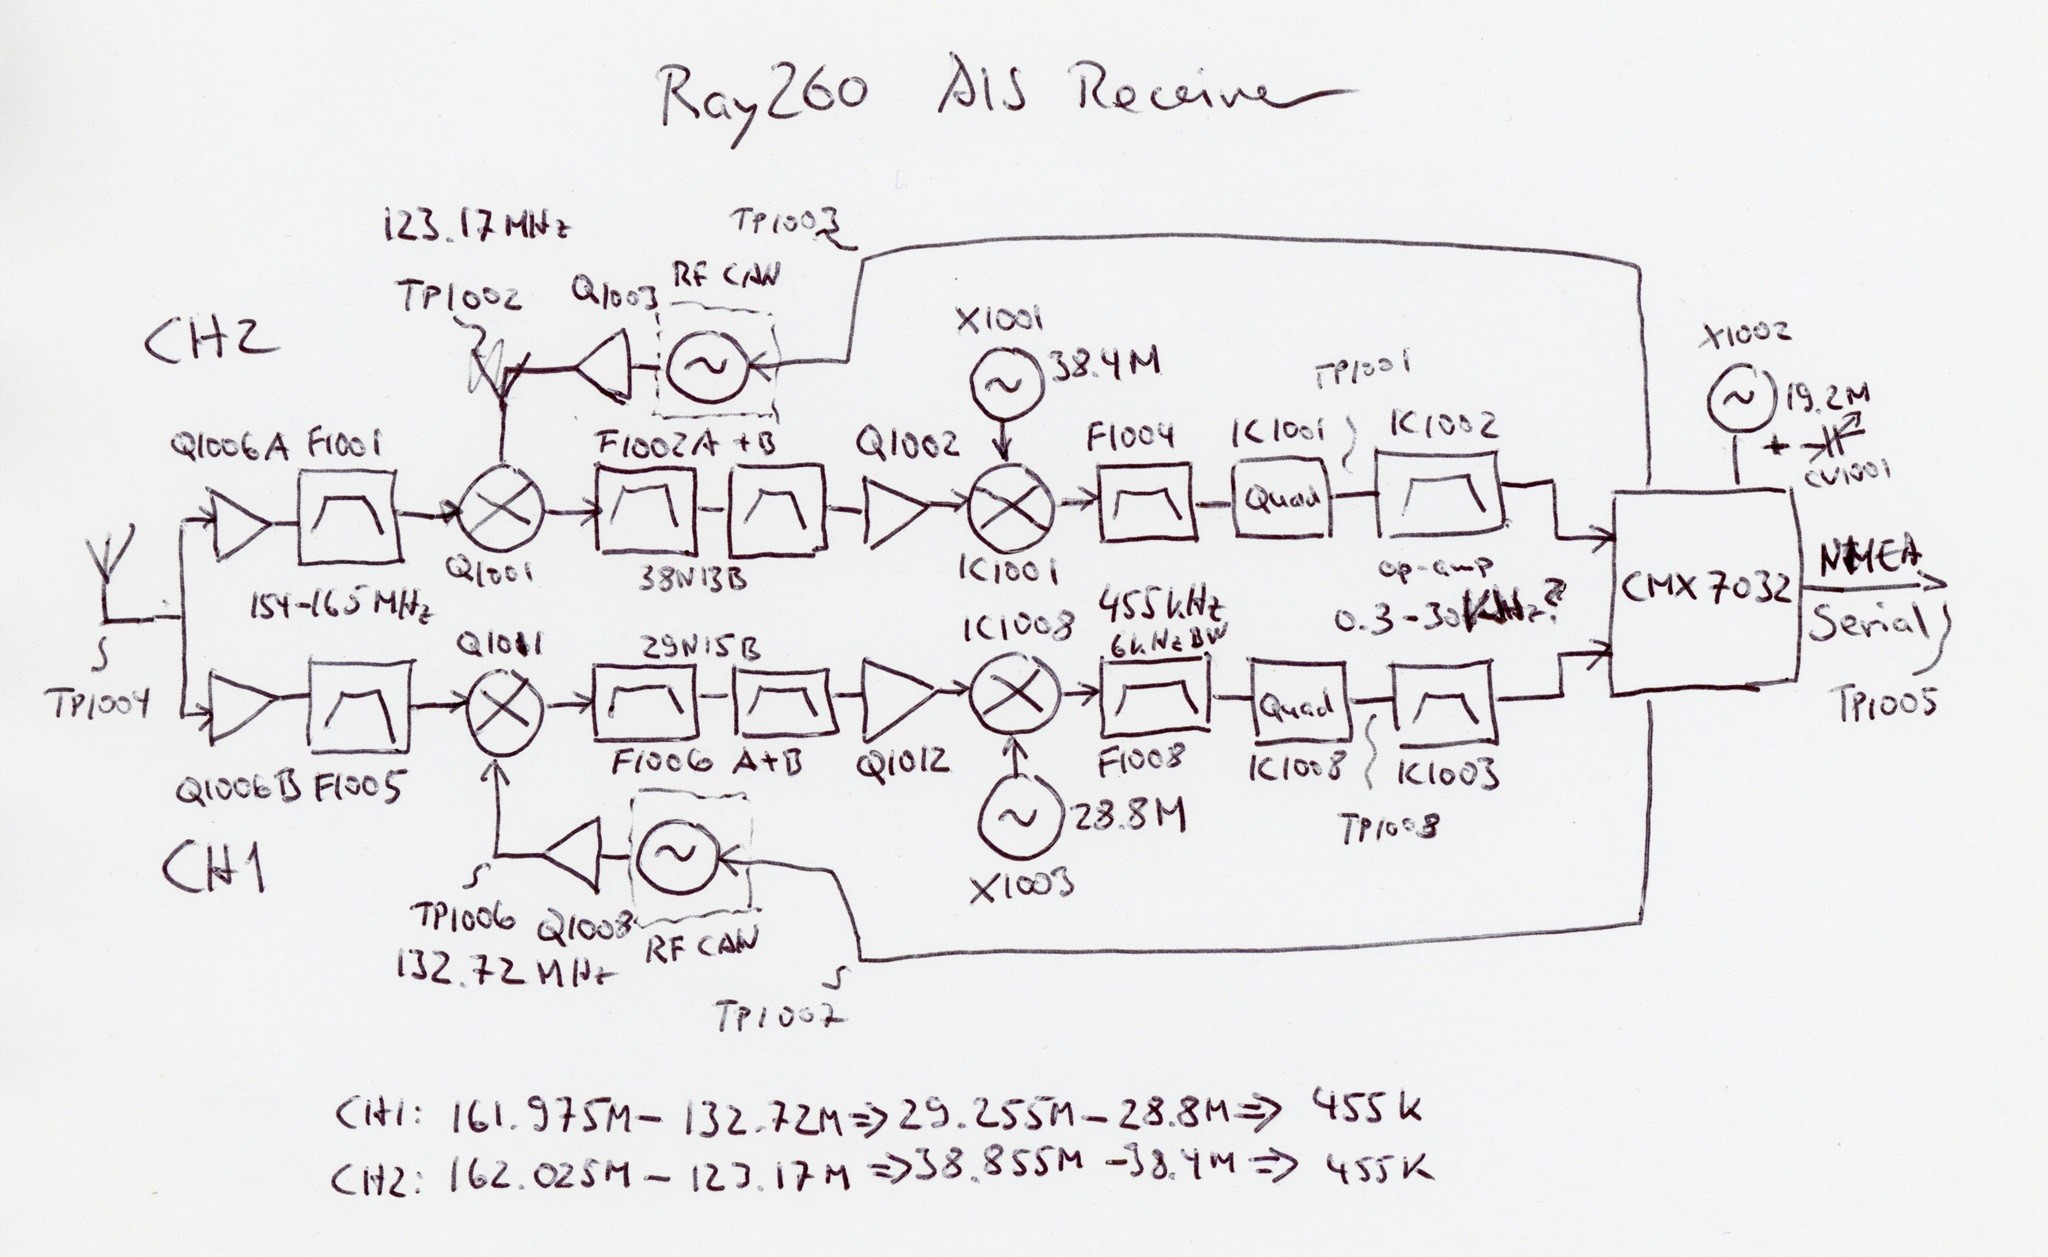 Ray260 AIS Receiver
123.17MHz
TP1003
TP1002
Q1003
RF CAN
CH2
X1001
38.4M
TP1001
X1002
19.2M
+
CV1001
Q1006A F1001
F1002A +B
Q1002
F1004
IC1001
IC1002
Quad
Q1001
38N13B
IC1001
op-amp
154-165MHz
CMX7032
NMEA
Serial
TP1005
455kHz
6kHzBW
0.3-30KHz?
TP1004
Q1011
29N15B
IC1008
Quad
Q1006B F1005
F1006 A+B
Q1012
F1008
IC1008
IC1003
28.8M
X1003
TP1008
CH1
TP1006
Q1008
RF CAN
132.72MHz
TP1007
CH1: 161.975M - 132.72M => 29.255M - 28.8M => 455K
CH2: 162.025M - 123.17M => 38.855M - 38.4M => 455K